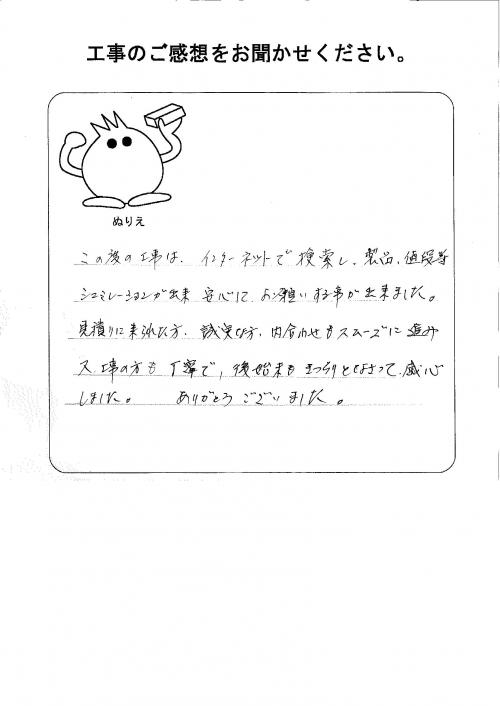 工事のご感想をお聞かせください。
ぬりえ
この度の工事は、インターネットで検索し、製品、値段等
シュミレーションが出来 安心して お願いする事が出来ました。
見積りに来られた方、誠実な方、打合わせもスムーズに進み
又 工事の方も 丁寧で、後始末も きっちりとなさって、感心
しました。 ありがとうございました。